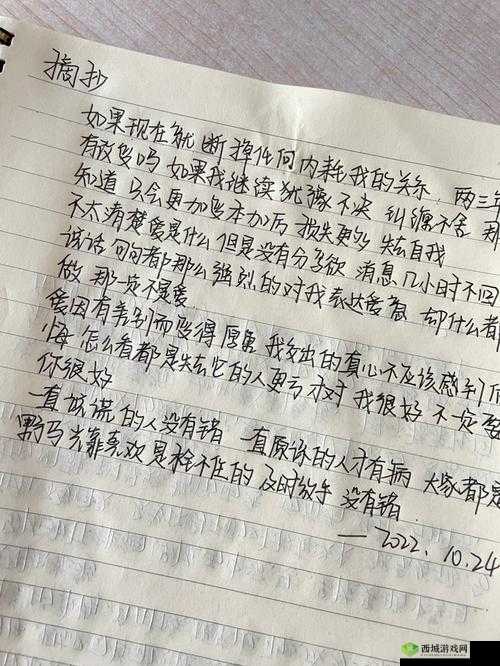 摘抄
如果现在就断掉任何内耗我的关系 两三年
有改变吗 如果我继续犹豫不决 纠缠不舍 那
知道 只会更加变本加厉 损失更多 失去自我
不太清楚爱是什么 但是没有分享欲 消息几小时不回
说话句句都那么强烈的对我表达爱意 却什么都
做 那一定不是爱
爱因有差别而变得 我交出的真心不应该感到
悔 怎么看都是失去它的人更亏才对 我很好 不一定要
你很好
一直说谎的人没有错 一直原谅的人才有病 大家都是
野马光靠喜欢是栓不住的 及时放手 没有错
— 2022.10.24
西城游戏网